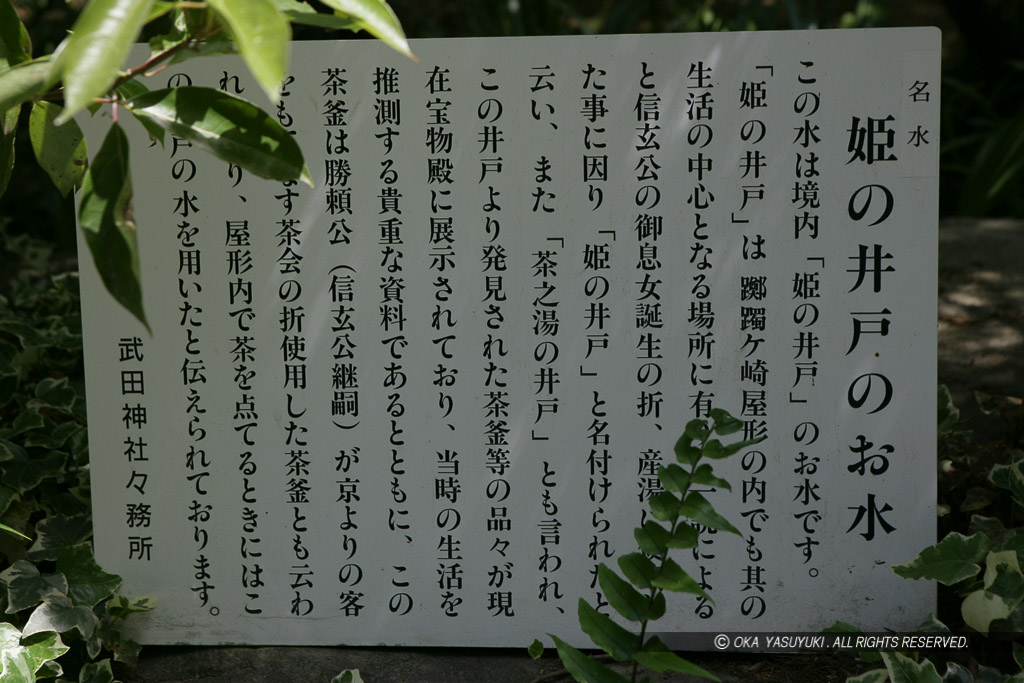 名水
姫の井戸のお水
この水は境内「姫の井戸」のお水です。
「姫の井戸」は躑躅ケ崎屋形の内でも其の
生活の中心となる場所に有 説による
と信玄公の御息女誕生の折、産湯
た事に因り「姫の井戸」と名付けられたと
云い、また「茶之湯の井戸」とも言われ、
この井戸より発見された茶釜等の品々が現
在宝物殿に展示されており、当時の生活を
推測する貴重な資料であるとともに、この
茶釜は勝頼公（信玄公継嗣）が京よりの客
をも す茶会の折使用した茶釜とも云わ
れ り、屋形内で茶を点てるときにはこ
の 戸の水を用いたと伝えられております。
武田神社々務所
© OKA YASUYUKI. ALL RIGHTS RESERVED.